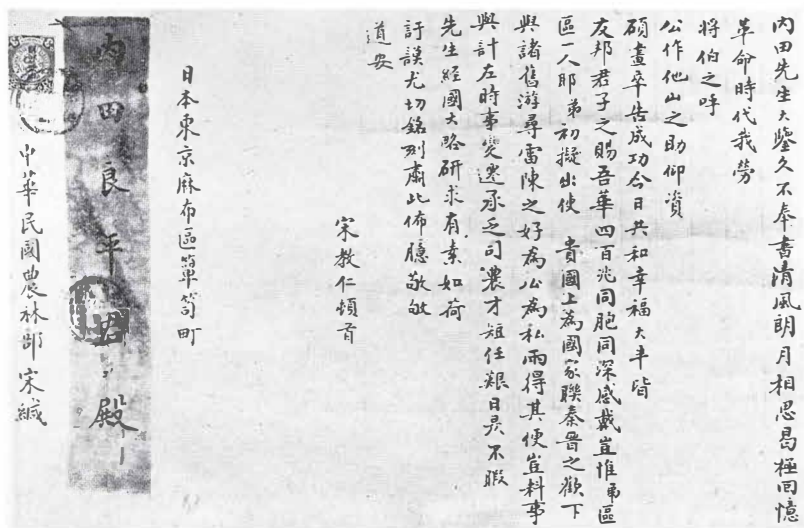 內田先生大鑒久不奉書清風朗月相思曷極回憶
革命時代我勞
將伯之呼
公作他山之助仰資
碩畫卒告成功今日共和幸福大半皆
友邦君子之賜吾華四百兆同胞同深感戴豈惟弟區
區一人耶弟初擬出使 貴國上為國家聯秦晉之歡下
與諸舊游尋雷陳之好為公為私兩得其便豈料事
與計左時事變遷承乏司農才短任艱日昃不暇
先生經國大略研求有素如荷
訏謨尤切銘列肅此佈臆敬敂
道安
宋教仁頓首
日本東京麻布區簞笥町
內田良平君殿
中華民國農林部宋緘